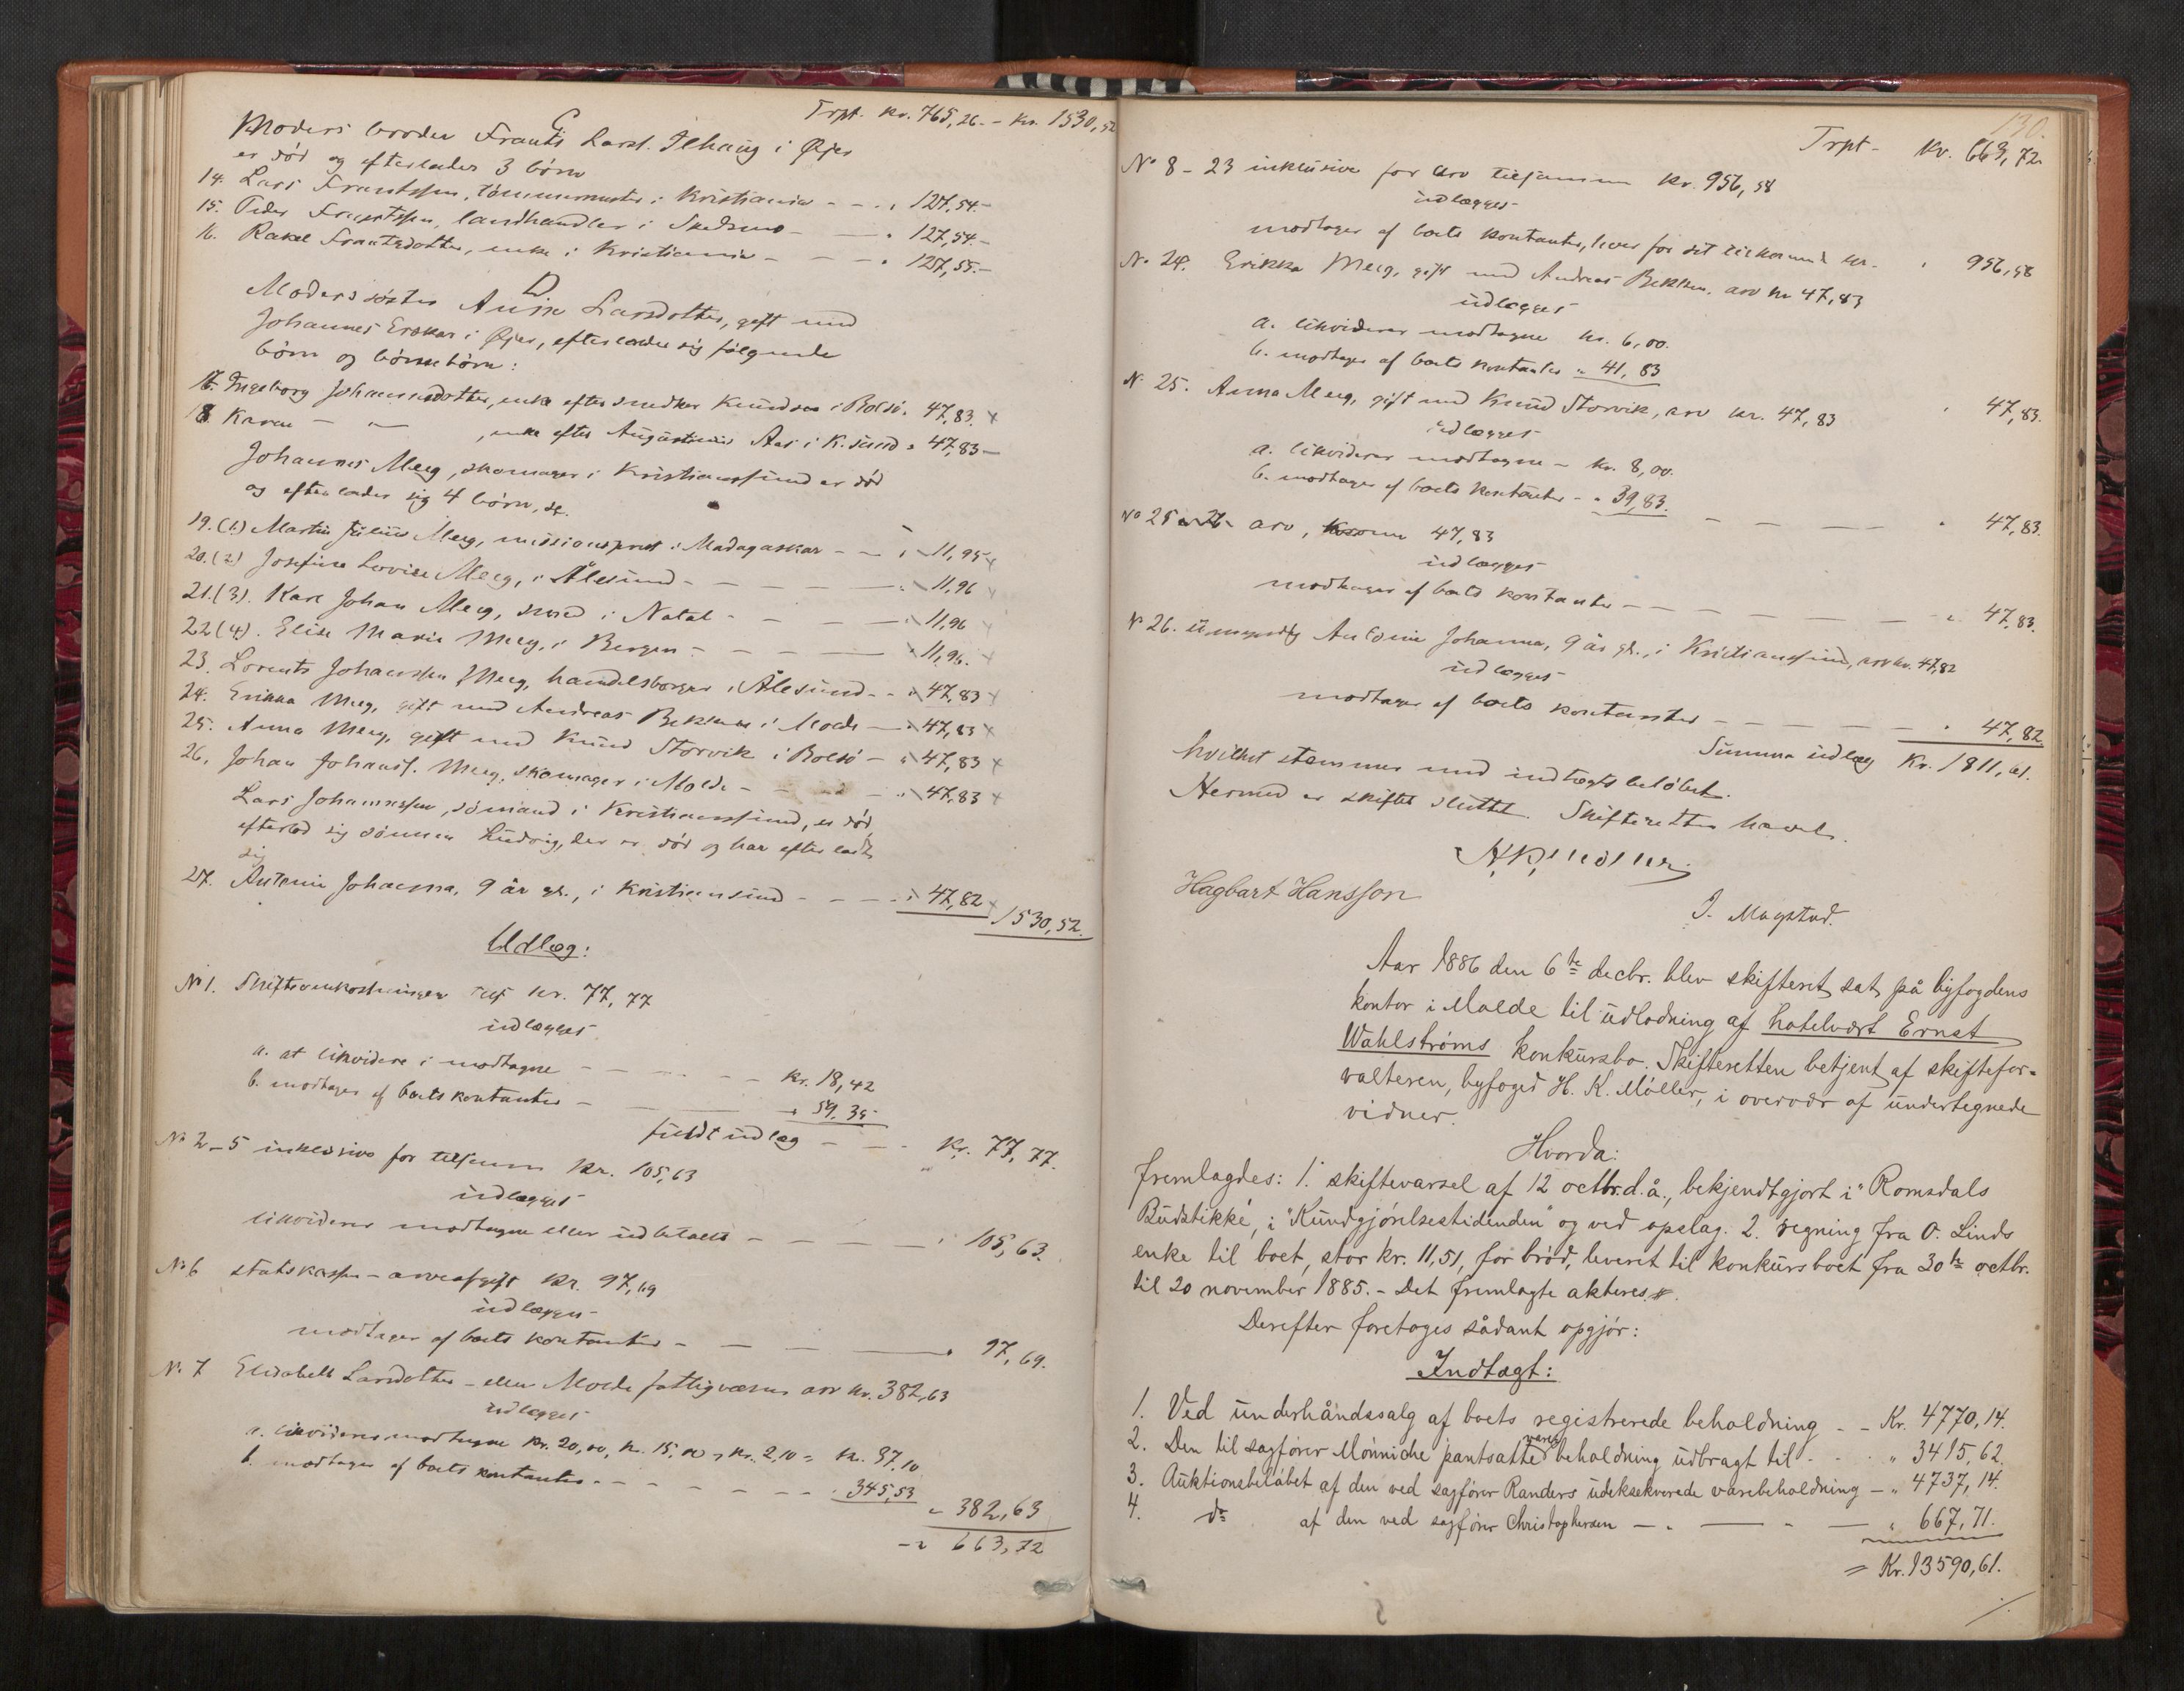 Trpt. kr. 765,26. - kr. 1530,52
C
Moders broder Frants Larss. Ilhaug i Øjer
er död og efterlader 3 börn
14. Lars Frantssen, tömmermester i Kristiania - - " 127,54.-
15. Peder Frantssen, landhandler i Skedsmo - " 127,54.-
16. Rakel Frantsdotter, enke i Kristiania - - - " 127,55.-
D
Moderssöster Anne Larsdotter, gift med
Johannes i Øjer, efterlader sig fölgende
börn og börnebörn:
17. Ingeborg Johannesdotter, enke efter snedker Knudsen i Bolsö " 47,83. x
18 Karen - " - , enke efter Augustinus Aas i K.sund " 47,83 -
Johannes Meeg, skomager i Kristianssund er död
og efterlader sig 4 börn, se.
19. (1.) Martin Julius Meeg, missionsprest i Madagaskar - - " 11,95 x
20. (2) Josefine Lovise Meeg, i Ålesund - - - - " 11,96 x
21. (3). Karl Johan Meeg, smed i Natal - - - - " 11,96 x
22 (4). Elise Marie Meeg, i Bergen - - - - " 11,96. x
23. Lorents Johanssen Meeg, handelsborger i Ålesund - - " 47,83 x
24. Erikka Meeg, gift med Andreas Bekken i Molde - " 47,83 x
25. Anna Meeg, gift med Knud Storvik i Bolsö - " 47,83 x
26. Johan Johanss. Meeg, skomager i Molde - - - " 47,83 x
Lars Johannssen, sömand i Kristianssund, er död,
efterlod sig sönnen Ludvig, der er död og har efterladt
sig
27. Antonie Johanna, 9 år gl., i Kristiansund - - - " 47,82 x
1530,52.
Udlæg:
No 1. Skifteomkostninger kr. 77,77
udlægges
a. at likvidere i modtagne - - - - - kr. 18,42
b. modtages af boets kontanter - - - " 59.35
fuldt udlæg - - - Kr. 77,77.
No 2-5 inklusive for tilsammen Kr. 105,63
udlægges
likviderer modtagne eller udbetalte - - - - " 105,63.
No 6 statskassen - arveafgift kr. 97,69
udlægges
modtages af boets kontanter - - - - " 97,69.
No. 7 Elisabeth Larsdotter - eller Molde fattigvæsen arv kr. 382,63
udlægges
a. likviderer modtagne kr. 20,00, kr. 15,00, kr. 2,10 = kr. 37,10
b. modtages af boets kontanter - - - - - - " 345,53
" 382,63
- " 663,72
130.
Trpt - kr. 663,72.
No 8 - 23 inklusive for arv tilsammen kr. 956,58
udlægges
modtages af boets kontanter, hver for sit tilkommende kr. " 956,58
No. 24. Erikka Meeg, gift med Andreas Bekken, arv kr 47,83
udlægges
a. likviderer modtagne kr. 6,00.
b. modtages af boets kontanter " 41,83
" 47,83.
No 25. Anna Meeg, gift med Knud Storvik, arv kr. 47,83
udlægges
a. likviderer modtagne - kr. 8,00.
b. modtages af boets kontanter - " 39,83. - - - - " 47,83.
No 25 arv, 47,83
udlægges
modtages af boets kontanter - - - - - - " 47,83.
No 26. umyndig Antonie Johanna, 9 år gl., i Kristianssund, arv kr. 47,82
udlægges
modtages af boets kontanter - - - - - " 47,82.
Summa udlæg Kr. 1811,61.
hvilket stemmer med indtægtsbelöbet.
Hermed er skiftet sluttet. Skifteretten hævet.
H.K. Möller
Hagbart Hansson
J. Magstad.
Aar 1886 den 6te decbr. blev skifteret sat på byfogdens
kontor i Molde til udlodning af hotelvært Ernst
Wahlströms konkursbo. Skifteretten betjent af skiftefor-
valteren, byfoged H. K. Möller, i overvær af undertegnede
vidner.
Hvorda:
fremlagdes: 1. skiftevarsel af 12 octbr. d.å., bekjendtgjort i "Romsdals
Budstikke", i "Kundgjörelsestidenden" og ved opslag. 2. regning fra O. Linds
enke til boet, stor kr. 11,51, for bröd, leveret til konkursboet fra 30te octbr.
til 20 november 1885. - Det fremlagte akteres.
Derefter foretoges sådant opgjör:
Indtægt:
1. Ved underhåndssalg af boets registrerede beholdning - - Kr. 4770,14.
2. Den til sagförer Mönniche pantsatte varebeholdning udbragt til - - " 3415,62.
3. Auktionsbelöbet af den ved sagförer Randers udeksekverede varebeholdning - " 4737,14.
4. do af den ved sagförer Christophersen - - - - " 667,71.
= Kr. 13590,61.